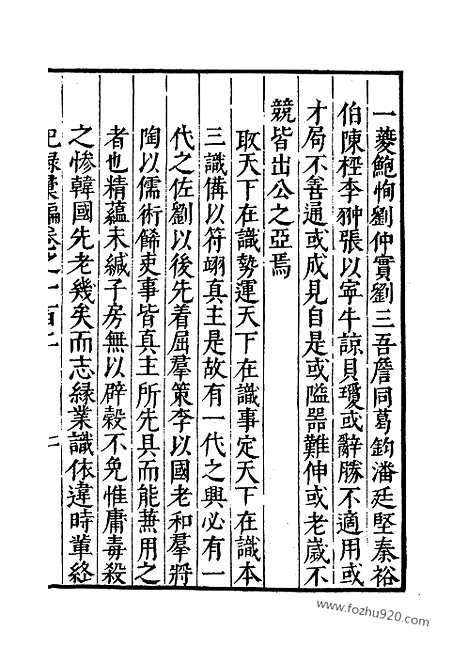 一夔鮑恂劉仲實劉三吾詹同葛鈞潘廷堅秦裕
伯陳桱李翀張以寧牛諒貝瓊或辭勝不適用或
才局不善通或成見自是或隘器難伸或老嵗不
競皆出公之亞焉
取天下在識勢運天下在識事定天下在識本
三識備以符翊真主是故有一代之興必有一
代之佐劉以後先着屈羣策李以國老和羣將
陶以儒術餙吏事皆真主所先具而能兼用之
者也精蘊未緘子房無以辟穀不免惟庸毒殺
之慘韓國先老幾矣而志緑業識依違時輩終
紀録彙編卷之一百 二
www.fozhu920.com